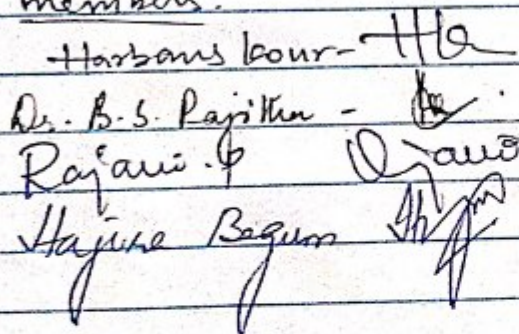 members.
Harbans kour -
Dr. B. S. Rajitha -
Rajani. P
Hajira Begum